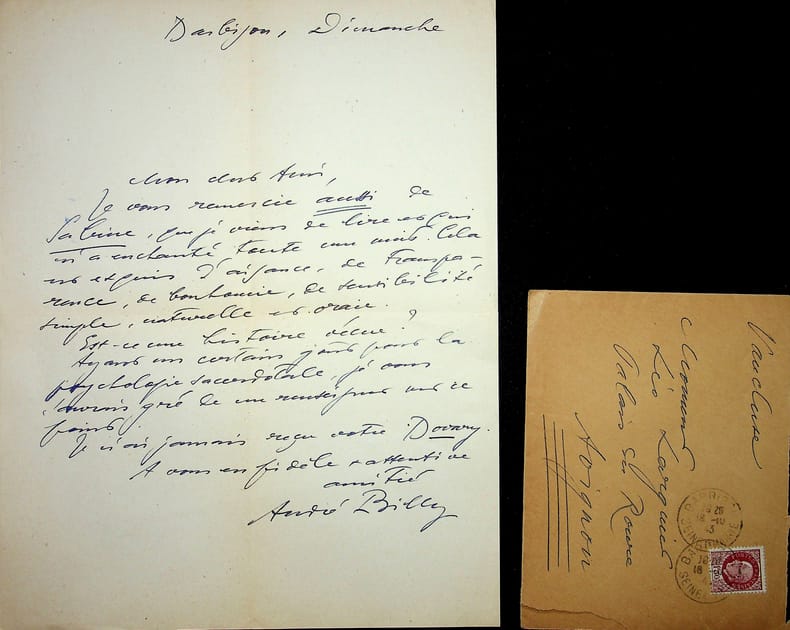 Barbizon, Dimanche
Mon cher Ami,
Je vous remercie aussi de
Sabine, que je viens de lire et qui
m'a enchanté toute une nuit. Cela
est exquis d'aisance, de transpa-
rence, de bonhomie, de sensibilité
simple, naturelle et vraie.
Est-ce une histoire vécue ?
Ayant un certain goût pour la
psychologie sacerdotale, je vous
saurais gré de me renseigner sur ce
point.
Je n'ai jamais reçu votre Bovary.
A vous en fidèle et attentive
amitié
André Billy
Monsieur
Léo Larguier
Palais du Roure
Avignon
Vaucluse
BARBIZON
SEINE
18 -10
BARBIZON
SEINE
18
POSTES